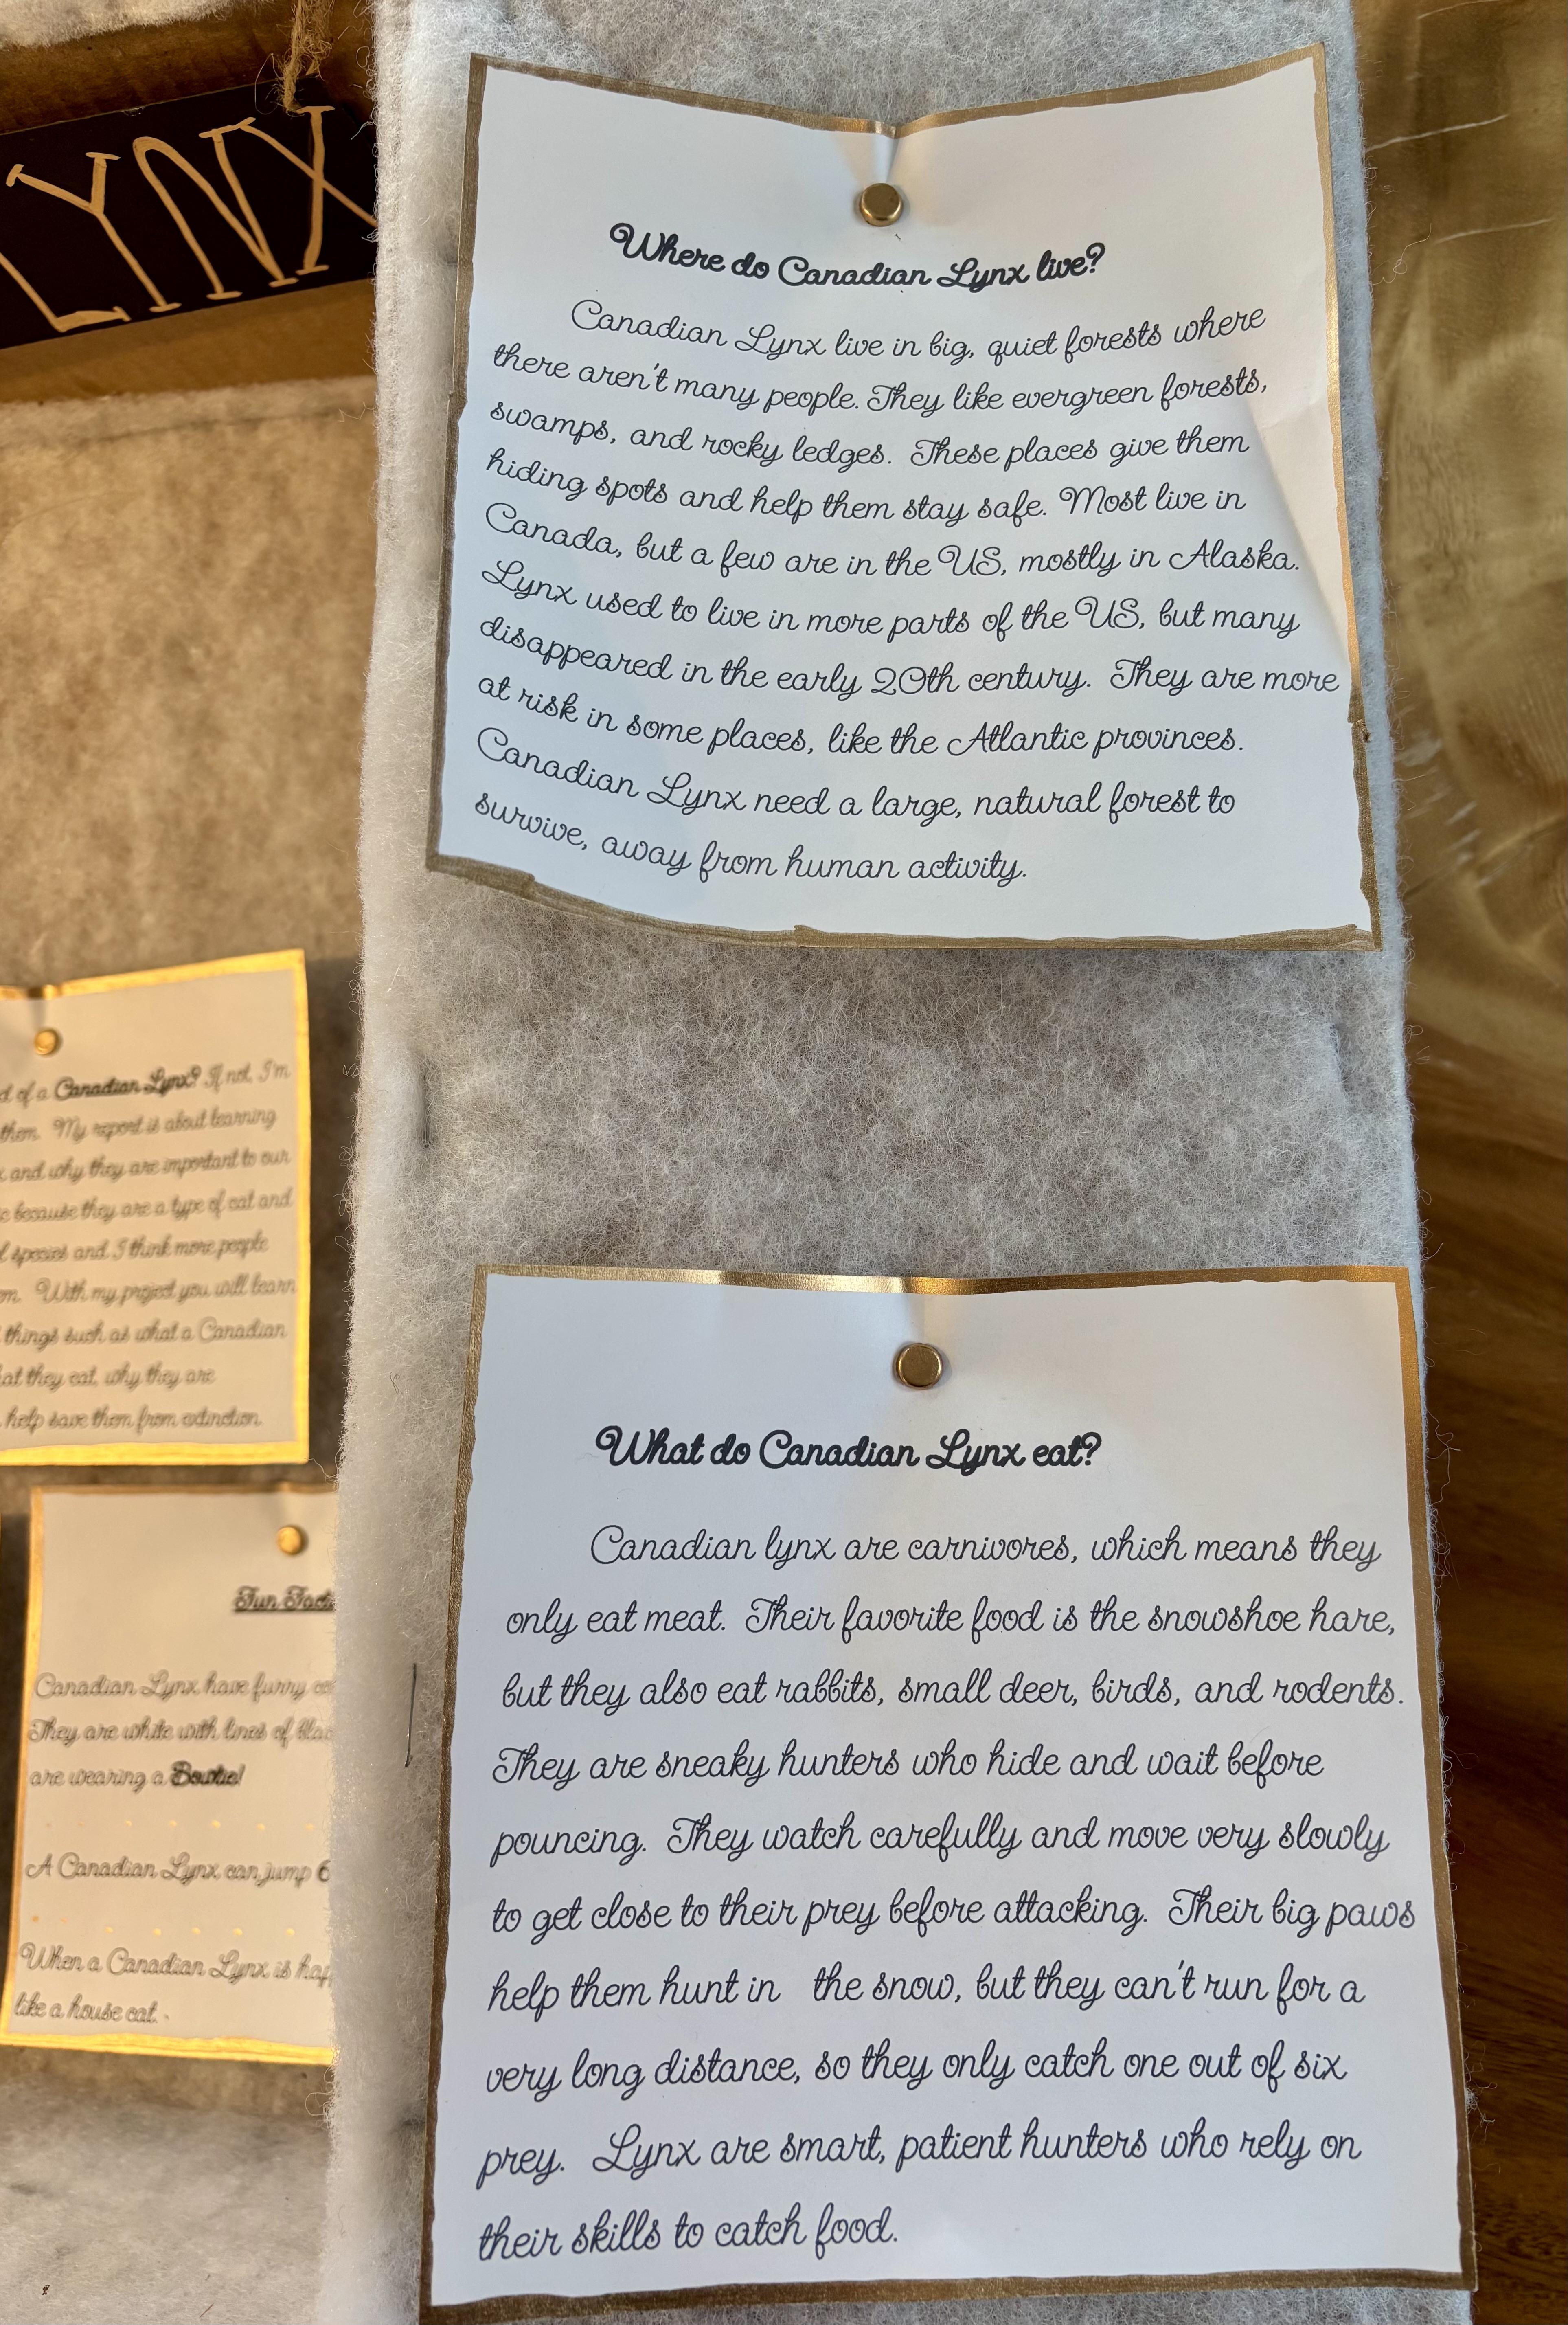 LYNX
Where do Canadian Lynx live?
Canadian Lynx live in big, quiet forests where
there aren't many people. They like evergreen forests,
swamps, and rocky ledges. These places give them
hiding spots and help them stay safe. Most live in
Canada, but a few are in the US, mostly in Alaska.
Lynx used to live in more parts of the US, but many
disappeared in the early 20th century. They are more
at risk in some places, like the Atlantic provinces.
Canadian Lynx need a large, natural forest to
survive, away from human activity.
of a Canadian Lynx? If not, I'm
them. My report is about learning
and why they are important to our
because they are a type of cat and
species and I think more people
With my project you will learn
things such as what a Canadian
they eat, why they are
help save them from extinction.
Fun
Canadian Lynx have furry
They are white with lines of
are wearing a Bowtie!
A Canadian Lynx can jump 6
When a Canadian Lynx is
like a house cat.
What do Canadian Lynx eat?
Canadian lynx are carnivores, which means they
only eat meat. Their favorite food is the snowshoe hare,
but they also eat rabbits, small deer, birds, and rodents.
They are sneaky hunters who hide and wait before
pouncing. They watch carefully and move very slowly
to get close to their prey before attacking. Their big paws
help them hunt in the snow, but they can't run for a
very long distance, so they only catch one out of six
prey. Lynx are smart, patient hunters who rely on
their skills to catch food.